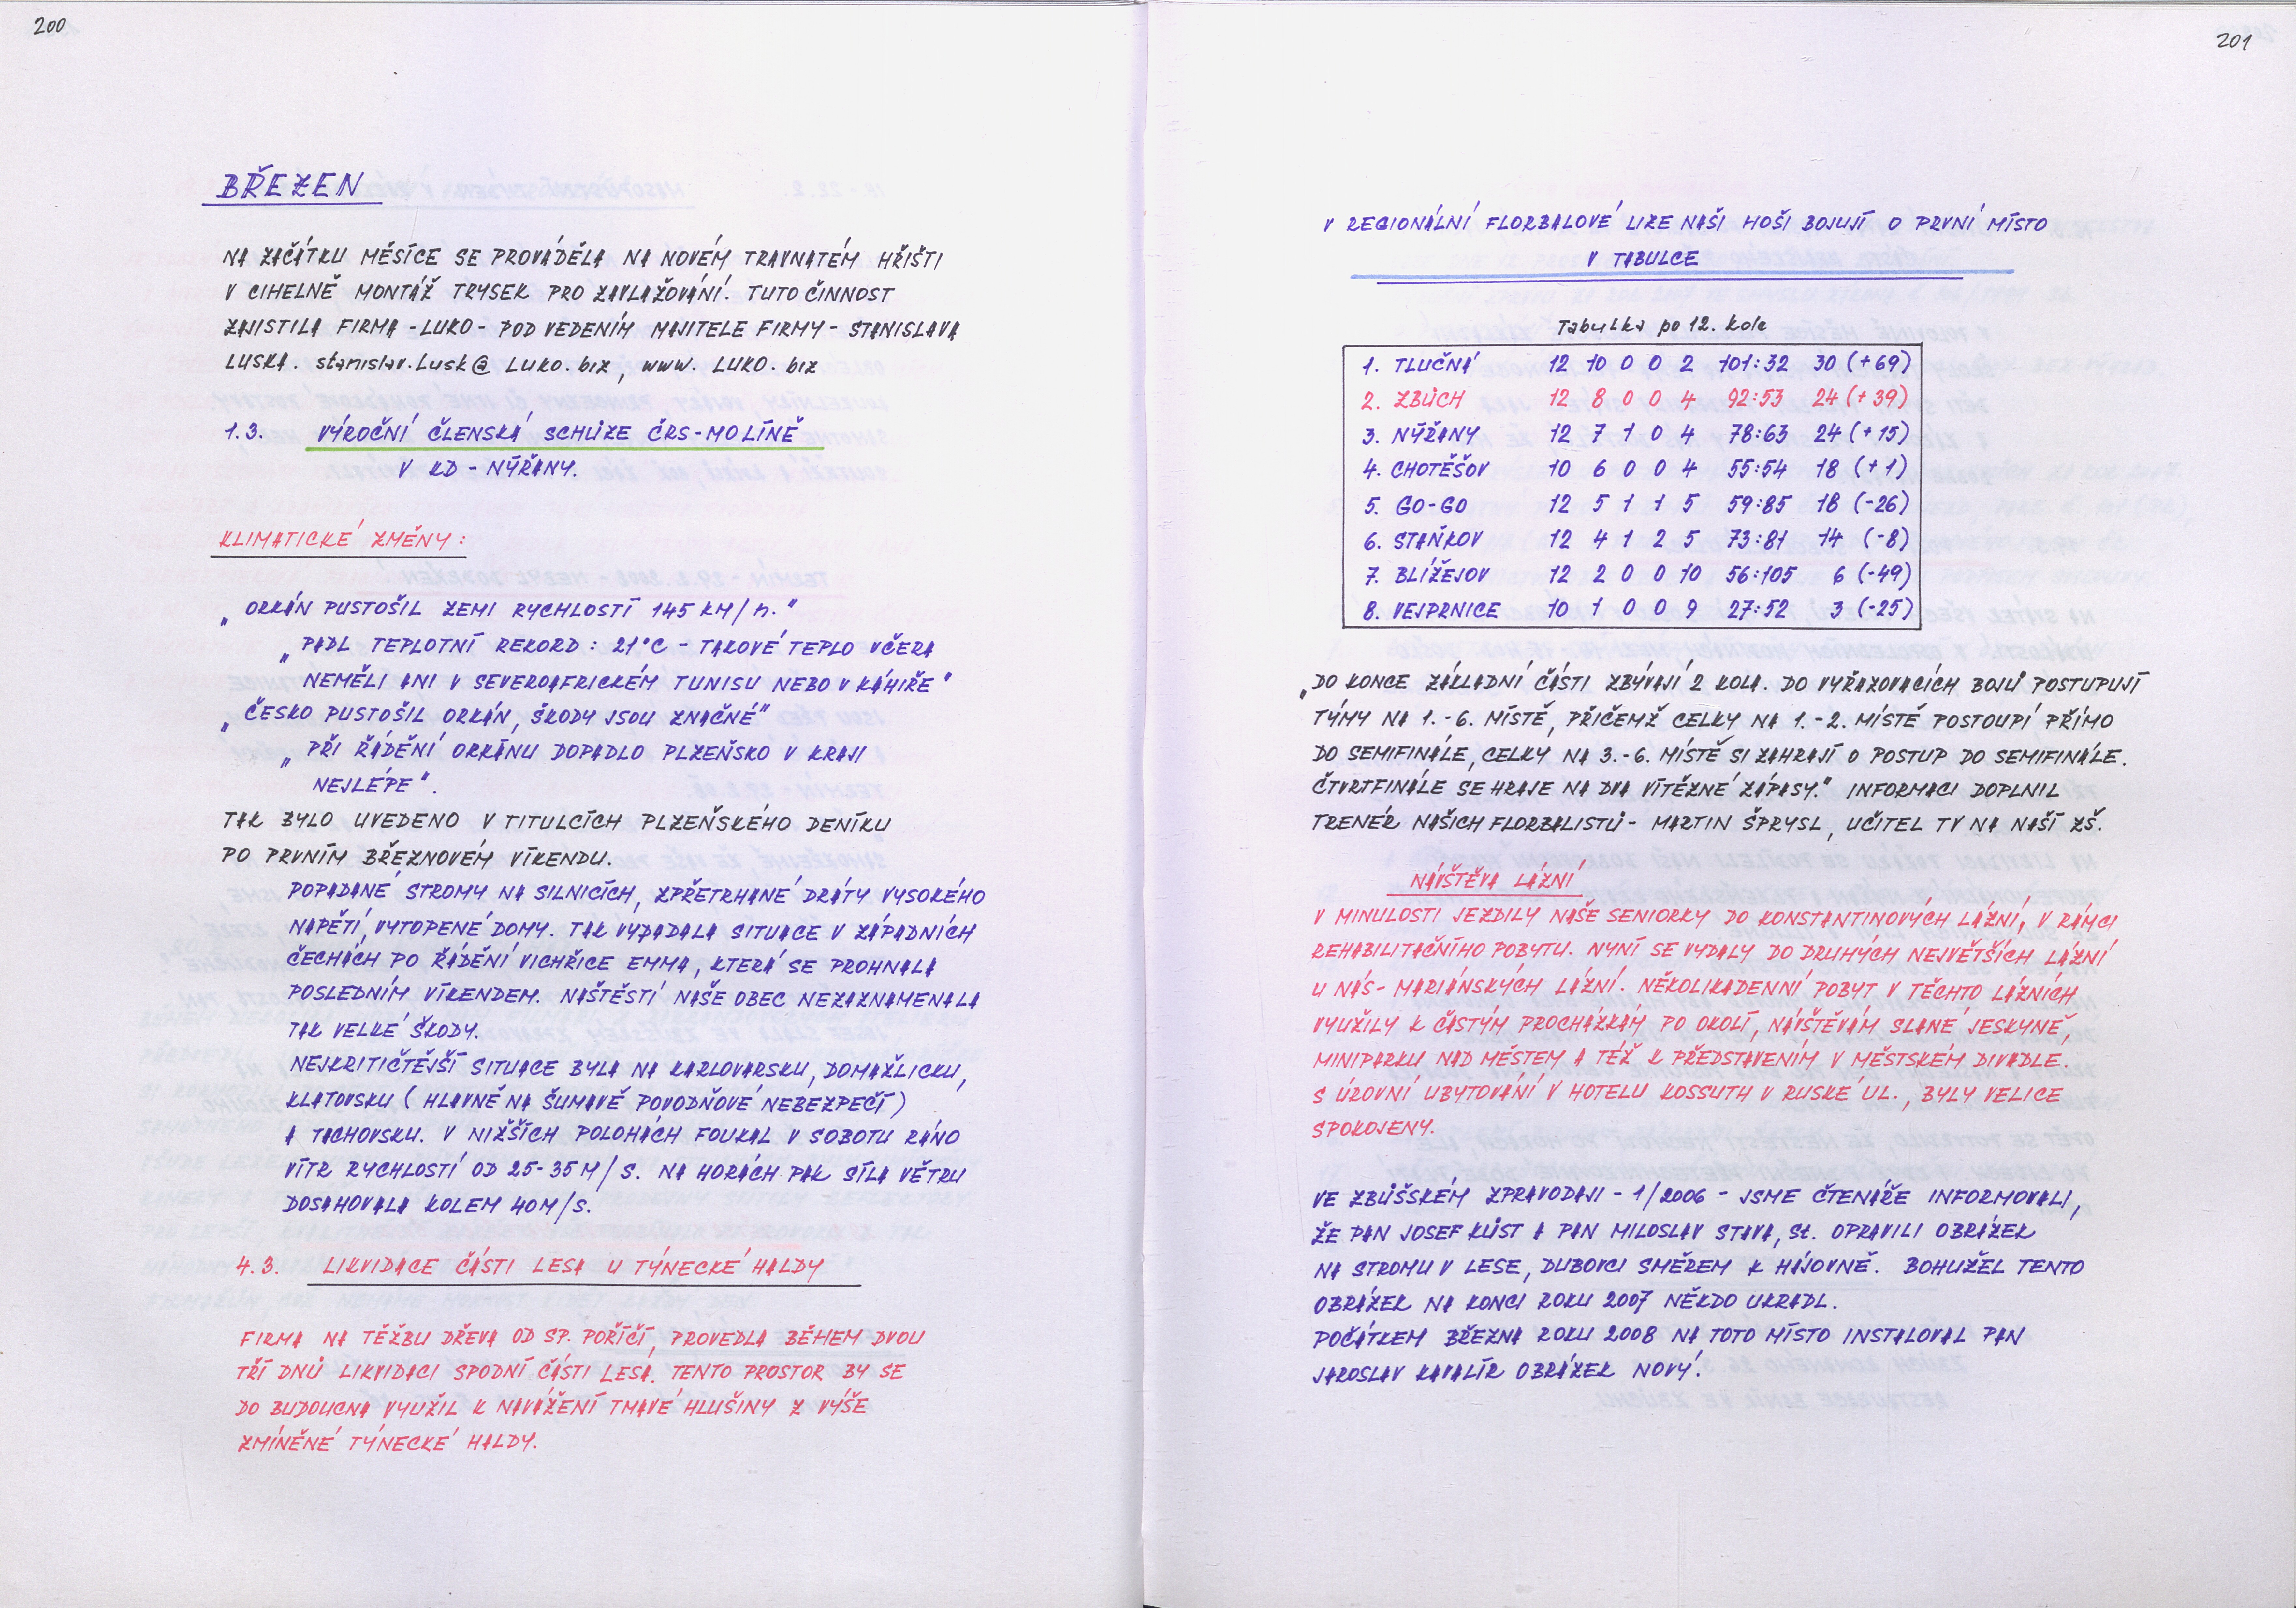 200
BŘEZEN
NA ZAČÁTKU MĚSÍCE SE PROVÁDĚLA NA NOVÉM TRAVNATÉM HŘIŠTI
V CIHELNĚ MONTÁŽ TRYSEK PRO ZAVLAŽOVÁNÍ. TUTO ČINNOST
ZAJISTILA FIRMA - LUKO - POD VEDENÍM MAJITELE FIRMY - STANISLAVA
LUSKA. stanislav.Lusk@LUKO.biz, www.LUKO.biz
1.3. VÝROČNÍ ČLENSKÁ SCHŮZE ČRS-MO LÍNĚ
V KD - NÝŘANY.
KLIMATICKÉ ZMĚNY:
„ORKÁN PUSTOŠIL ZEMI RYCHLOSTÍ 145 KM/h."
„PADL TEPLOTNÍ REKORD: 21°C - TAKOVÉ TEPLO VČERA
NEMĚLI ANI V SEVEROAFRICKÉM TUNISU NEBO V KÁHIŘE"
„ČESKO PUSTOŠIL ORKÁN, ŠKODY JSOU ZNAČNÉ"
„PŘI ŘÁDĚNÍ ORKÁNU DOPADLO PLZEŇSKO V KRAJI
NEJLÉPE".
TAK BYLO UVEDENO V TITULCÍCH PLZEŇSKÉHO DENÍKU
PO PRVNÍM BŘEZNOVÉM VÍKENDU.
POPADANÉ STROMY NA SILNICÍCH, ZPŘETRHANÉ DRÁTY VYSOKÉHO
NAPĚTÍ, VYTOPENÉ DOMY. TAK VYPADALA SITUACE V ZÁPADNÍCH
ČECHÁCH PO ŘÁDĚNÍ VICHŘICE EMMA, KTERÁ SE PROHNALA
POSLEDNÍM VÍKENDEM. NAŠTĚSTÍ NAŠE OBEC NEZAZNAMENALA
TAK VELKÉ ŠKODY.
NEJKRITIČTĚJŠÍ SITUACE BYLA NA KARLOVARSKU, DOMAŽLICKU,
KLATOVSKU (HLAVNĚ NA ŠUMAVĚ POVODŇOVÉ NEBEZPEČÍ)
A TACHOVSKU. V NIŽŠÍCH POLOHÁCH FOUKAL V SOBOTU RÁNO
VÍTR RYCHLOSTÍ OD 25-35 M/S. NA HORÁCH PAK SÍLA VĚTRU
DOSAHOVALA KOLEM 40 M/S.
4.3. LIKVIDACE ČÁSTI LESA U TÝNECKÉ HALDY
FIRMA NA TĚŽBU DŘEVA OD SP. POŘÍČÍ, PROVEDLA BĚHEM DVOU
TŘÍ DNŮ LIKVIDACI SPODNÍ ČÁSTI LESA. TENTO PROSTOR BY SE
DO BUDOUCNA VYUŽIL K NAVÁŽENÍ TMAVÉ HLUŠINY Z VÝŠE
ZMÍNĚNÉ TÝNECKÉ HALDY.
201
V REGIONÁLNÍ FLORBALOVÉ LIZE NAŠI HOŠI BOJUJÍ O PRVNÍ MÍSTO
V TABULCE
Tabulka po 12. kole
1. TLUČNÁ 12 10 0 0 2 101:32 30 (+69)
2. ZBŮCH 12 8 0 0 4 92:53 24 (+39)
3. NÝŘANY 12 7 1 0 4 78:63 24 (+15)
4. CHOTĚŠOV 10 6 0 0 4 55:54 18 (+1)
5. GO-GO 12 5 1 1 5 59:85 18 (-26)
6. STAŇKOV 12 4 1 2 5 73:81 14 (-8)
7. BLÍŽEJOV 12 2 0 0 10 56:105 6 (-49)
8. VEJPRNICE 10 1 0 0 9 27:52 3 (-25)
„DO KONCE ZÁKLADNÍ ČÁSTI ZBÝVAJÍ 2 KOLA. DO VYŘAZOVACÍCH BOJŮ POSTUPUJÍ
TÝMY NA 1.-6. MÍSTĚ, PŘIČEMŽ CELKY NA 1.-2. MÍSTĚ POSTOUPÍ PŘÍMO
DO SEMIFINÁLE, CELKY NA 3.-6. MÍSTĚ SI ZAHRAJÍ O POSTUP DO SEMIFINÁLE.
ČTVRTFINÁLE SE HRAJE NA DVA VÍTĚZNÉ ZÁPASY." INFORMACI DOPLNIL
TRENÉR NAŠICH FLORBALISTŮ - MARTIN ŠPRYSL, UČITEL TV NA NAŠÍ ZŠ.
NÁVŠTĚVA LÁZNÍ
V MINULOSTI JEZDILY NAŠE SENIORKY DO KONSTANTINOVÝCH LÁZNÍ, V RÁMCI
REHABILITAČNÍHO POBYTU. NYNÍ SE VYDALY DO DRUHÝCH NEJVĚTŠÍCH LÁZNÍ
U NÁS - MARIÁNSKÝCH LÁZNÍ. NĚKOLIKADENNÍ POBYT V TĚCHTO LÁZNÍCH
VYUŽILY K ČASTÝM PROCHÁZKÁM PO OKOLÍ, NÁVŠTĚVÁM SLANÉ JESKYNĚ,
MINIPARKU NAD MĚSTEM A TÉŽ K PŘEDSTAVENÍM V MĚSTSKÉM DIVADLE.
S ÚROVNÍ UBYTOVÁNÍ V HOTELU KOSSUTH V RUSKÉ UL., BYLY VELICE
SPOKOJENY.
VE ZBŮŠSKÉM ZPRAVODAJI - 1/2006 - JSME ČTENÁŘE INFORMOVALI,
ŽE PAN JOSEF KŮST A PAN MILOSLAV STAVA, St. OPRAVILI OBRÁZEK
NA STROMU V LESE, DUBOVCI SMĚREM K HÁJOVNĚ. BOHUŽEL TENTO
OBRÁZEK NA KONCI ROKU 2007 NĚKDO UKRADL.
POČÁTKEM BŘEZNA ROKU 2008 NA TOTO MÍSTO INSTALOVAL PAN
JAROSLAV KAVALÍR OBRÁZEK NOVÝ.